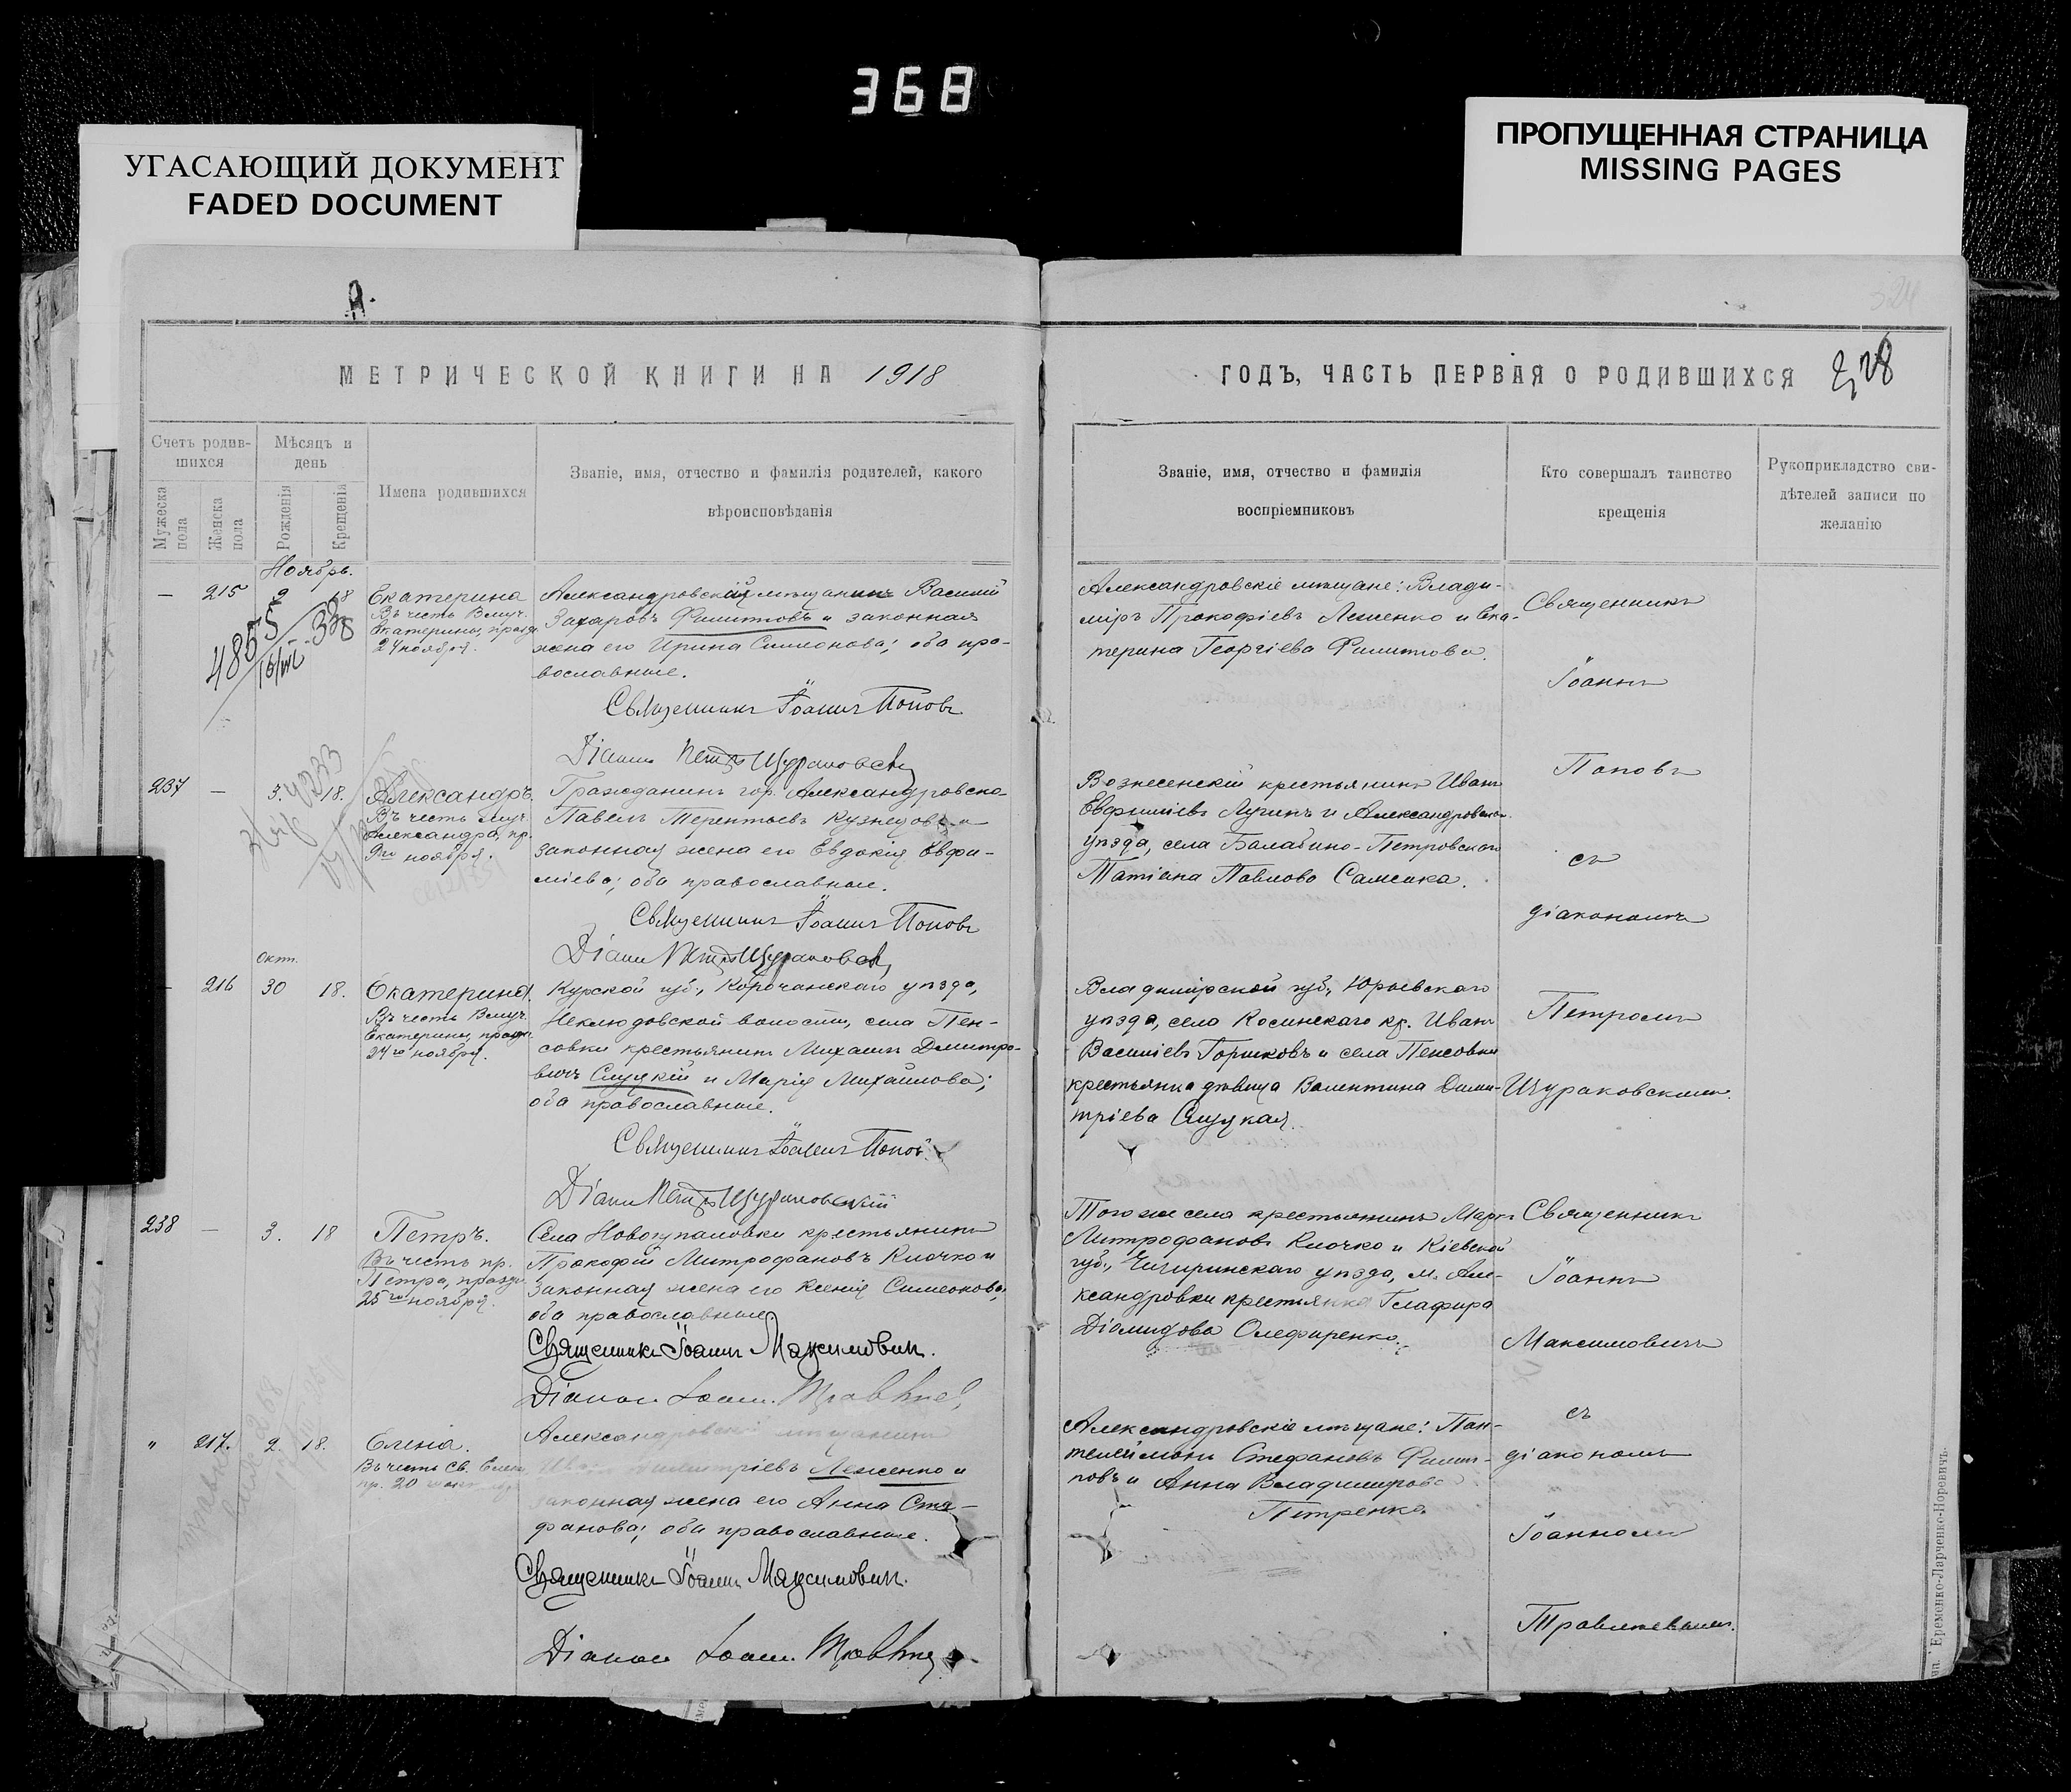 368
УГАСАЮЩИЙ ДОКУМЕНТ
FADED DOCUMENT
ПРОПУЩЕННАЯ СТРАНИЦА
MISSING PAGES
А.
324
МЕТРИЧЕСКОЙ КНИГИ НА 1918
ГОДЪ, ЧАСТЬ ПЕРВАЯ О РОДИВШИХСЯ
Счетъ родив-
шихся
Мѣсяцъ и
день
Мужеска
пола
Женска
пола
Рожденія
Крещенія
Имена родившихся
Званіе, имя, отчество и фамилія родителей, какого
вѣроисповѣданія
Званіе, имя, отчество и фамилія
воспріемниковъ
Кто совершалъ таинство
крещенія
Рукоприкладство сви-
дѣтелей записи по
желанію
Ноябрь.
— 215 2 18
4855
338
Екатерина
Въ честь Вмуч.
Екатерины, праздн.
24 ноября.
Александровскій мѣщанинъ Василій
Захаровъ Филипповъ и законная
жена его Ирина Симеонова; оба пра-
вославные.
Священникъ Іоаннъ Поповъ
Діаконъ Петръ Щураковскій
Александровскіе мѣщане: Влади-
міръ Прокофіевъ Леженко и Ека-
терина Георгіева Филиппова.
Священникъ
Іоаннъ
Поповъ
съ
діакономъ
Петромъ
Щураковскимъ.
237 — 3. 18.
Александръ.
Въ честь муч.
Александра, пр.
9го ноября.
Гражданинъ гор. Александровска
Павелъ Терентьевъ Кузнецовъ и
законная жена его Евдокія Евфи-
міева; оба православные.
Священникъ Іоаннъ Поповъ
Діаконъ Петръ Щураковскій
Вознесенскій крестьянинъ Иванъ
Евфиміевъ Лугинъ и Александровскаго
уѣзда, села Балабино-Петровскаго
Татіана Павлова Самсика.
Окт.
— 216 30 18.
Екатерина.
Въ честь Вмуч.
Екатерины, праздн.
24го ноября.
Курской губ., Корочанскаго уѣзда,
Неклюдовской волости, села Пен-
совки крестьянинъ Михаилъ Дмитрі-
вичъ Слуцкій и Марія Михаилова;
оба православные.
Священникъ Іоаннъ Поповъ
Діаконъ Петръ Щураковскій
Владимірской губ., Юрьевскаго
уѣзда, села Косинскаго кр. Иванъ
Василіевъ Горшковъ и села Пенсовки
крестьянка дѣвица Валентина Дими-
тріева Слуцкая.
238 — 3. 18
Петръ.
Въ честь пр.
Петра, праздн.
25го ноября.
Села Новогупаловки крестьянинъ
Прокофій Митрофановъ Клочко и
законная жена его Ксенія Симеонова;
оба православные.
Священникъ Іоаннъ Максимовичъ.
Діаконъ Іоаннъ
Того же села крестьянинъ Маркъ
Митрофановъ Клочко и Кіевской
губ., Чигиринскаго уѣзда, м. Але-
ксандровки крестьянка Глафира
Діомидова Олефиренко.
Священникъ
Іоаннъ
Максимовичъ
съ
діакономъ
Іоанномъ
Травлеевымъ.
" 217. 2. 18.
Елена.
Въ честь Св. Елены
пр. 20
Александровскій мѣщанинъ
Леженко и
законная жена его Анна Сте-
фанова; оба православные.
Священникъ Іоаннъ Максимовичъ.
Діаконъ Іоаннъ
Александровскіе мѣщане: Пан-
телеймонъ Стефановъ Филип-
повъ и Анна Владимірова
Петренко
Еременко-Ларченко-Норевичъ.